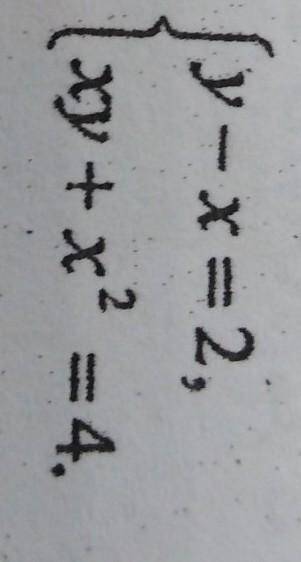 y − x = 2,
xy + x² = 4.